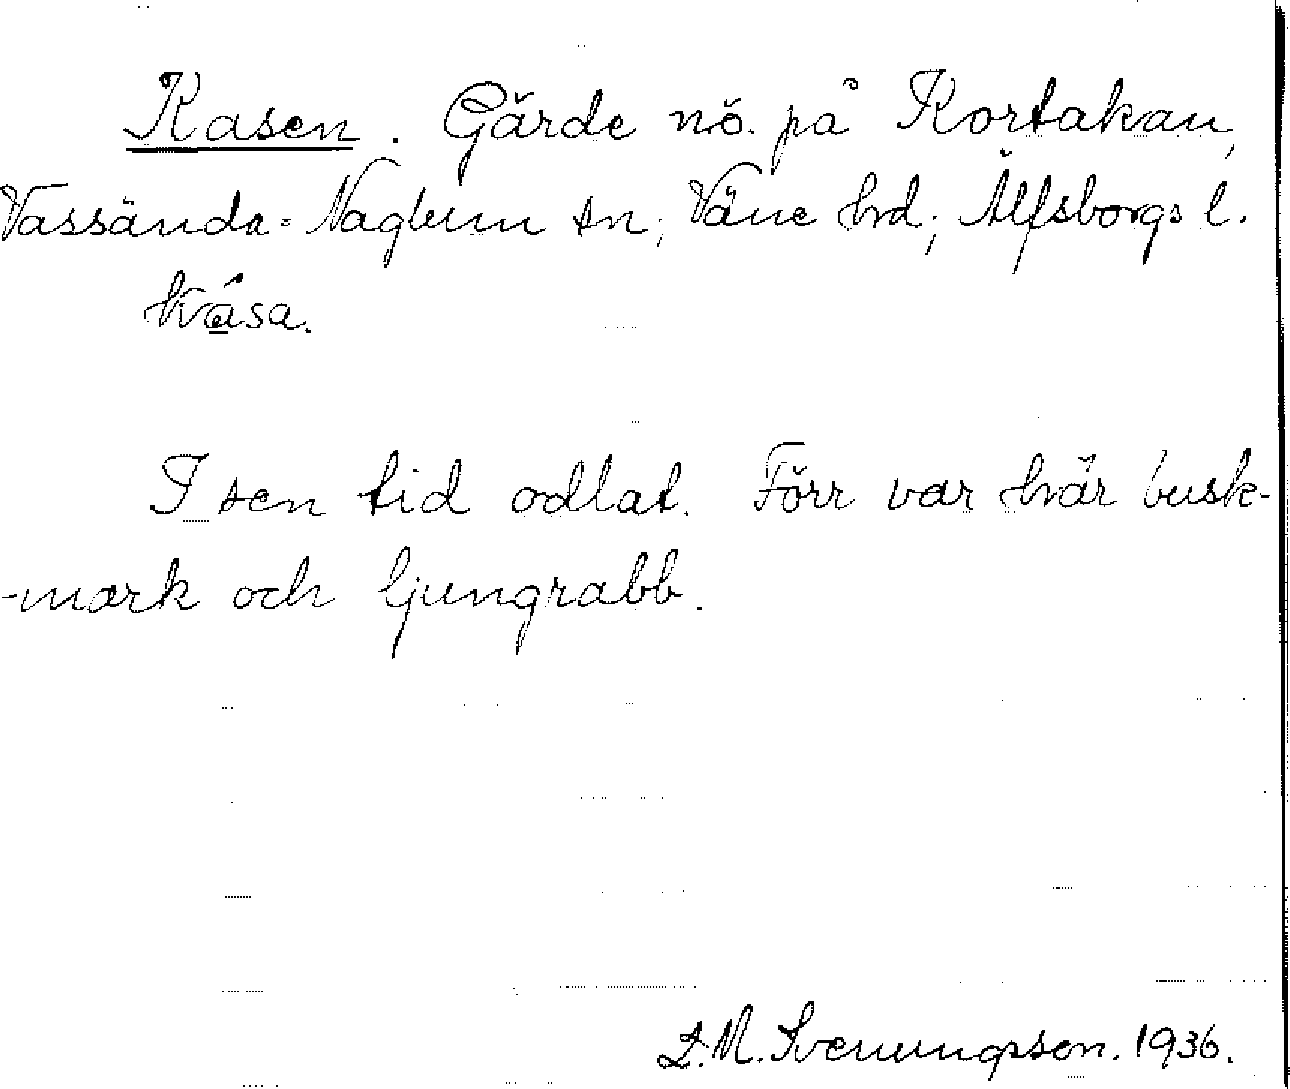 Kasen. Gärde nö. på Kortakan,
Vassända-Naglum sn; Väne hrd; Älfsborgs l.
kása.
I sen tid odlat. Förr var här busk-
-mark och ljungrabb.
L.M. Svenungsson. 1936.